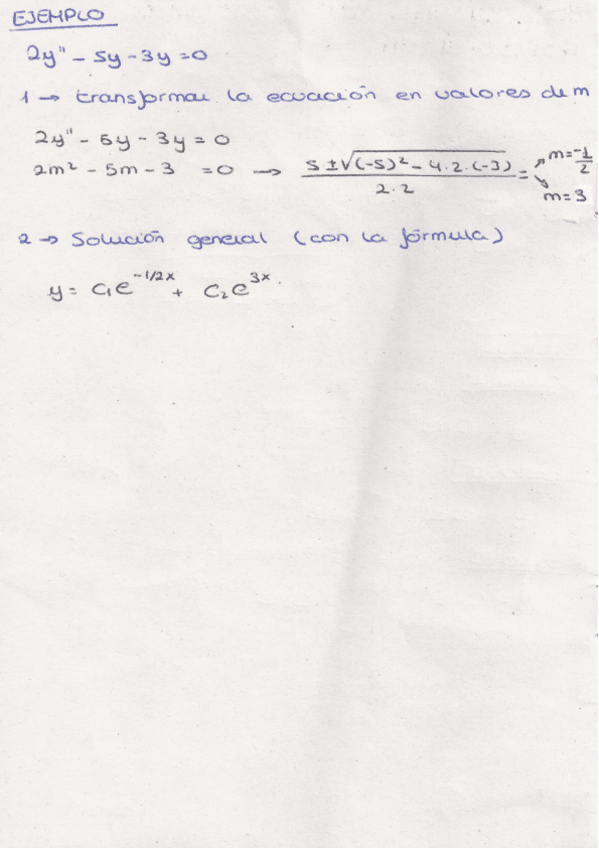 EJEMPLO
2y'' - 5y - 3y = 0
1 → transformar la ecuación en valores de m
2y'' - 5y - 3y = 0
2m² - 5m - 3 = 0 → 5 ± √(-5)² - 4.2.(-3) / 2.2 = ↗ m = -1/2 ↘ m = 3
2 → Solución general (con la fórmula)
y = C₁e^-1/2x + C₂e^3x.